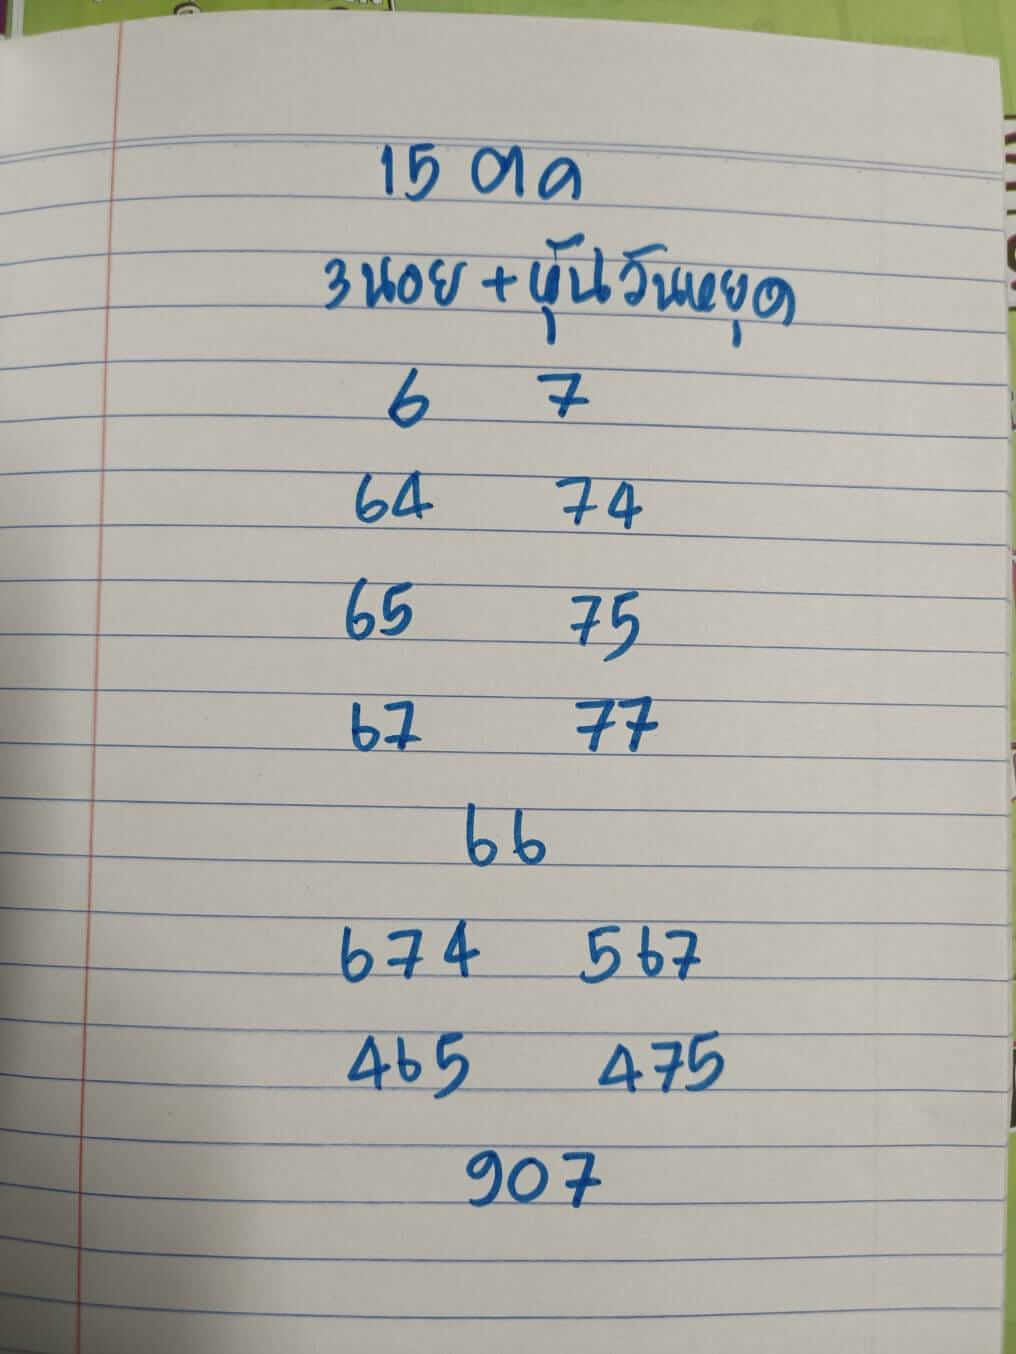 15 ตค
3นอย + หุ้นวันหยุด
6 7
64 74
65 75
67 77
66
674 567
465 475
907